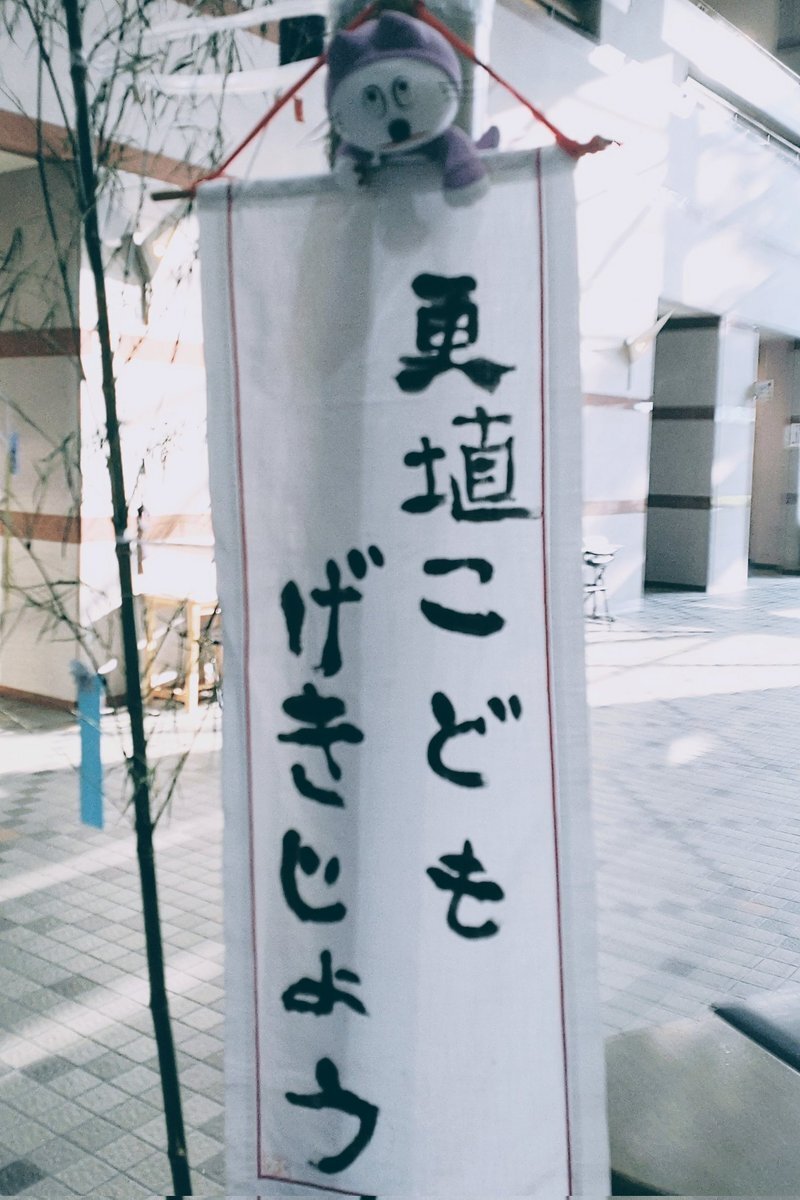 更埴こども
げきじょう